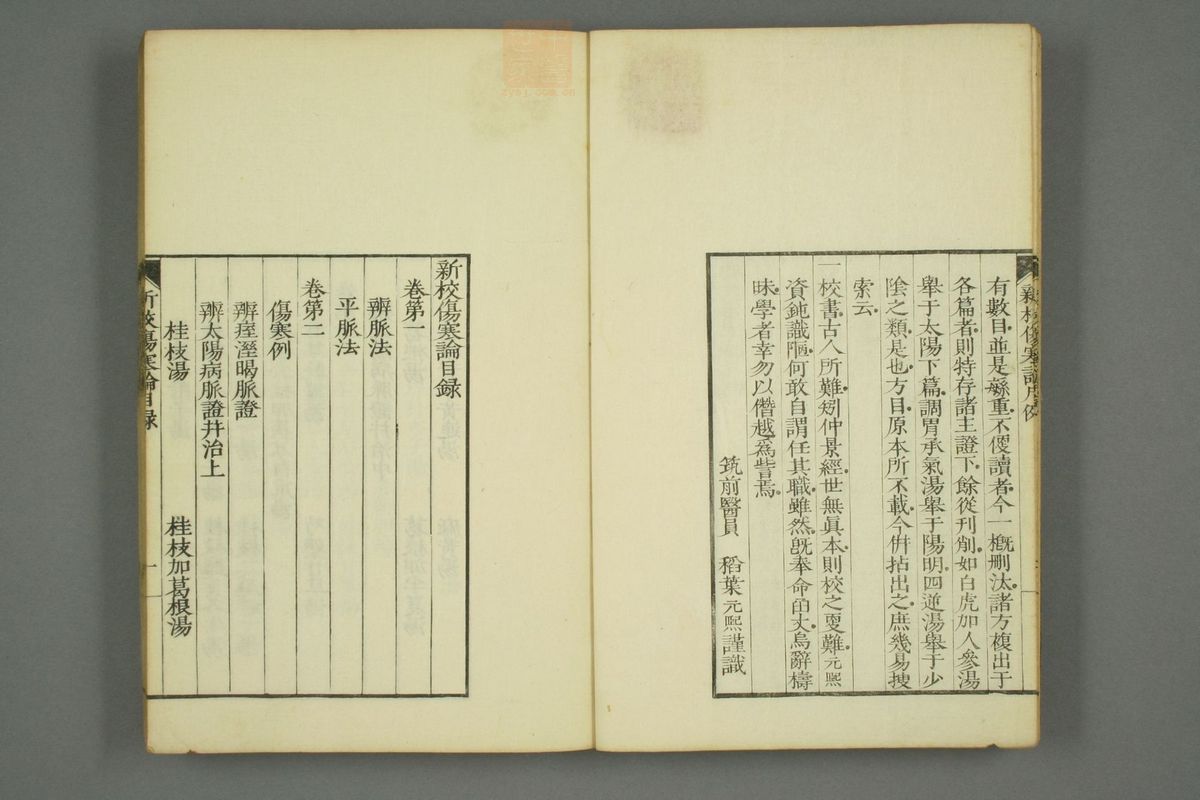 新校傷寒論凡例
有數目並是繇重不便讀者今一槪刪汰諸方複出于
各篇者則特存諸主證下餘從刊削如白虎加人參湯
舉于太陽下篇調胃承氣湯舉于陽明四逆湯舉于少
陰之類是也方目原本所不載今併拈出之庶幾易搜
索云
一校書古人所難矧仲景經世無眞本則校之更難元熙
資鈍識陋何敢自謂任其職雖然旣奉命函丈烏辭檮
昧學者幸勿以僭越爲訾焉
筑前醫員 稻葉元熙謹識
新校傷寒論目録
卷第一
辨脈法
平脈法
卷第二
傷寒例
辨痓溼暍脈證
辨太陽病脈證幷治上
桂枝湯 桂枝加葛根湯
新校傷寒論目録 一
zysj.com.cn